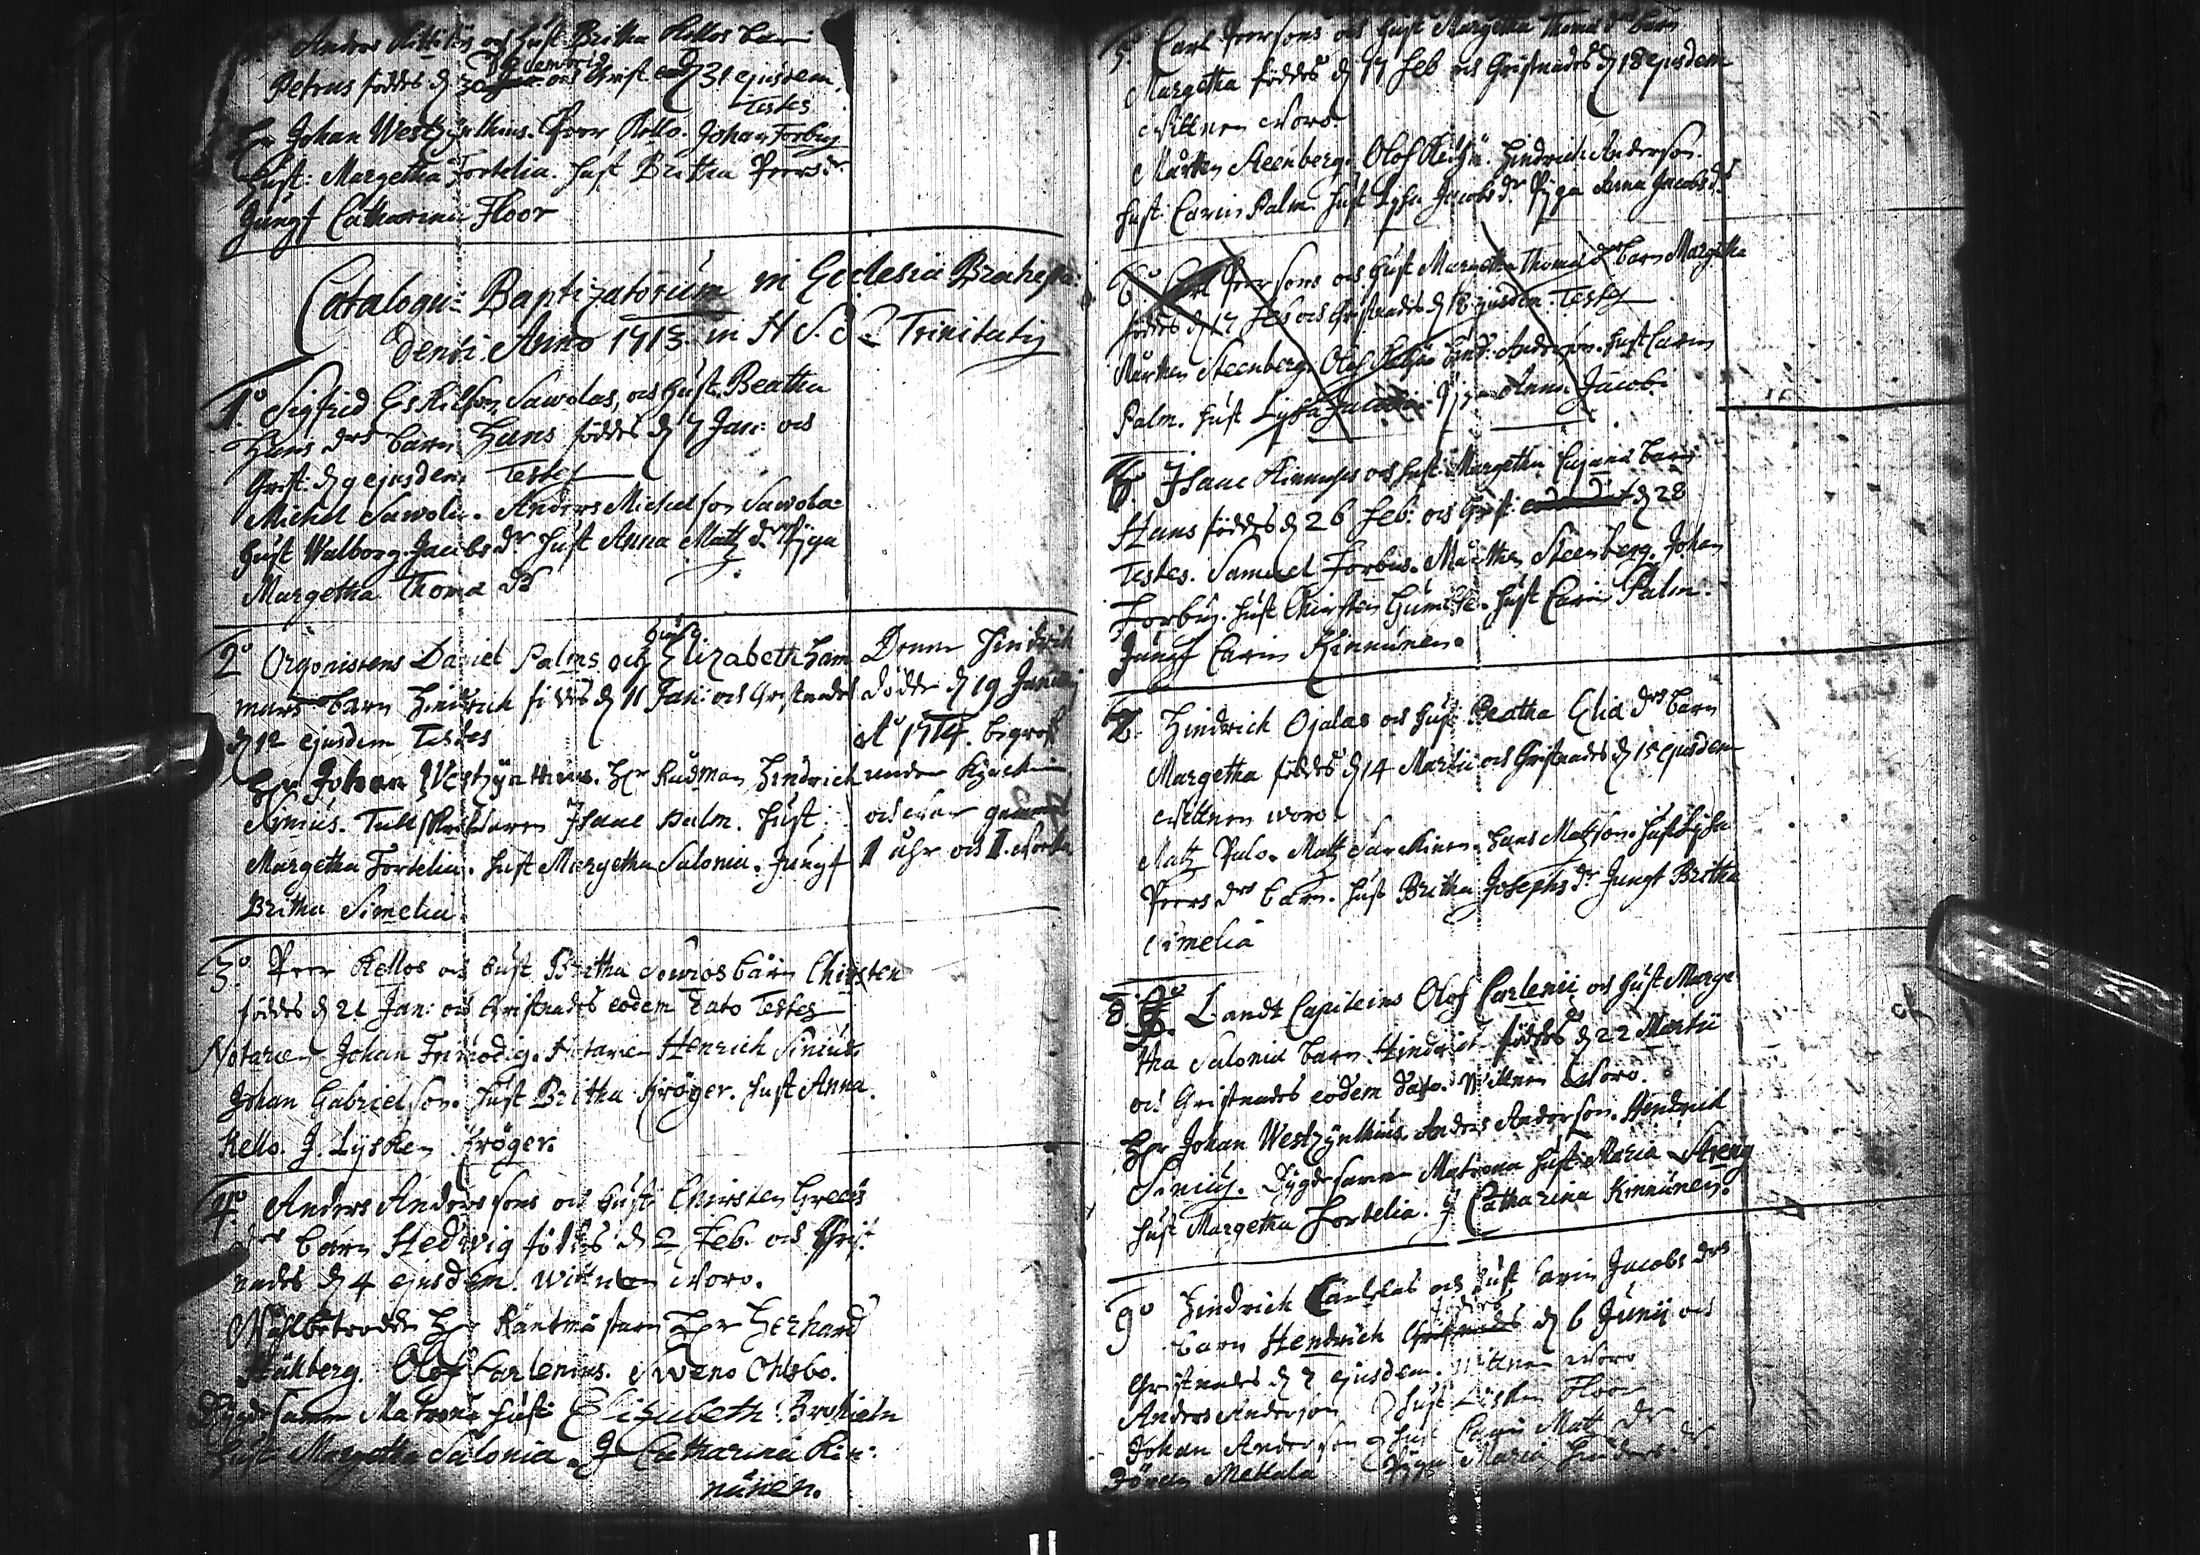 Anders Kittiläs och hust: Britha Kellos barn
Decembris
Petrus föddes d 30 och Christ d 31 ejusdem
Testes
Hr Johan Westzynthius. Peer Kello. Johan Forbus
Hust: Margetha Fortelia. Hust Britha Peers dr
Jungf Catharina Floor
Catalogus Baptizatorum in Ecclesia Brahesta:
densi Anno 1713 in H S. Trinitatis
1o Sigfred Eskilsson Sawolas, och hust. Beatha
Hans drs barn Hans föddes d 7 Jan: och
Christ: d 9 ejusdem Testes
Michel Sawola. Anders Michelson Sawola
hust Walborg Jacobs dr hust Anna Matz dr Pyga
Margetha Thoma dr
2o Orgonistens Daniel Palms och hust Elizabeth Ham
mars barn Hindrich föddes d 11 Jan: och Christnades
d 12 ejusdem Testes
Hr Johan Westzynthius. Hr Rådman Hindrich
Simius. Tullskrifwaren Isaac Palm. Hust:
Margetha Fortelia. hust Margetha Salonia. Jungf
Britha Simelia.
Denne Hindrich
dödde d 19 Januarii
Ao 1714. begrofs
under Kyrckian
och war gammal
1 åhr och 1 wecka
3o Peer Kellos och hust Britha Sowios barn Chirsten
föddes d 21 Jan: och Christnades eodem dato Testes
Notarien Johan Frimodig. Notarien Henrich Simius
Johan Gabrielson. Hust Britha Kröger. hust Anna
Kello. J. Lysken Kröger.
4o Anders Anderssons och hust Chirsten Greels
drs barn Hedwig föddes d 2 Feb. och Christ
nades d 4 ejusdem. Wittnen woro.
Wählbetrodde Hr Räntmästaren Hr Gerhard
Ståhlberg. Olof Carlenius. Sweno Ohlsbo.
Dygdesamme Matrona hust: Elizabeth Brohieln
Hust Margetha Salonia. J Catharina Kin:
nünen.
5. Carl Peersons och hust Margetha Thoma drs barn
Margetha föddes d 17 Feb och Christnades d 18 ejusdem
Wittnen woro.
Mårthen Steenberg. Olof Hindrich Anderson.
hust: Carin Palm. hust Lysa Jacobs dr Pyga Anna Jacobs dr
6. Carl Peersons och hust Margetha Thoma drs barn Margetha
föddes d 17 Feb och Christnades d 18 ejusdem. Testes
Mårthen Steenberg. Olof Hind: Anderson. hust Carin
Palm. hust Lysa Jacobs Pyga Anna Jacob:
6. Isaac Kinnunens och hust Margetha Cajana barn
Hans föddes d 26 Feb: och Christ: d 28
Testes. Samuel Forbus. Mårthen Steenberg. Johan
Forbus. hust Chirsten Hust Carin Palm.
Jungf Carin Kinnunen.
7. Hindrich Ojalas och hust: Beatha Elia drs barn
Margetha föddes d 14 Martii och Christnades d 15 ejusdem
Wittnen woro
Matz Palo. Matz Särckinen. Hans Matzson. hust Lysa
Peers drs barn. hust Britha Josephs dr Jungf Britha
Simelia
8 Landt Capiteins Olof Carlenii och hust Marge
tha Salonia barn Hindrich föddes d 22 Martii
och Christnades eodem dato. Wittnen woro.
Hr Johan Westzynthius. Anders Anderson. Hendrich
Simius. Dygdesamme Matrona hust Maria Streng
hust Margetha Fortelia. J Catharina Kinnunen.
9o Hindrich Carlelas och hust Carin Jacobs drs
barn Hendrich föddes d 6 Junii och
Christnades d 7 ejusdem. Wittnen woro
Anders Anderson hust Lisken Floor
Johan Anderson hust Carin Matz dr
Jören Mettala Pyga Maria Hinders dr